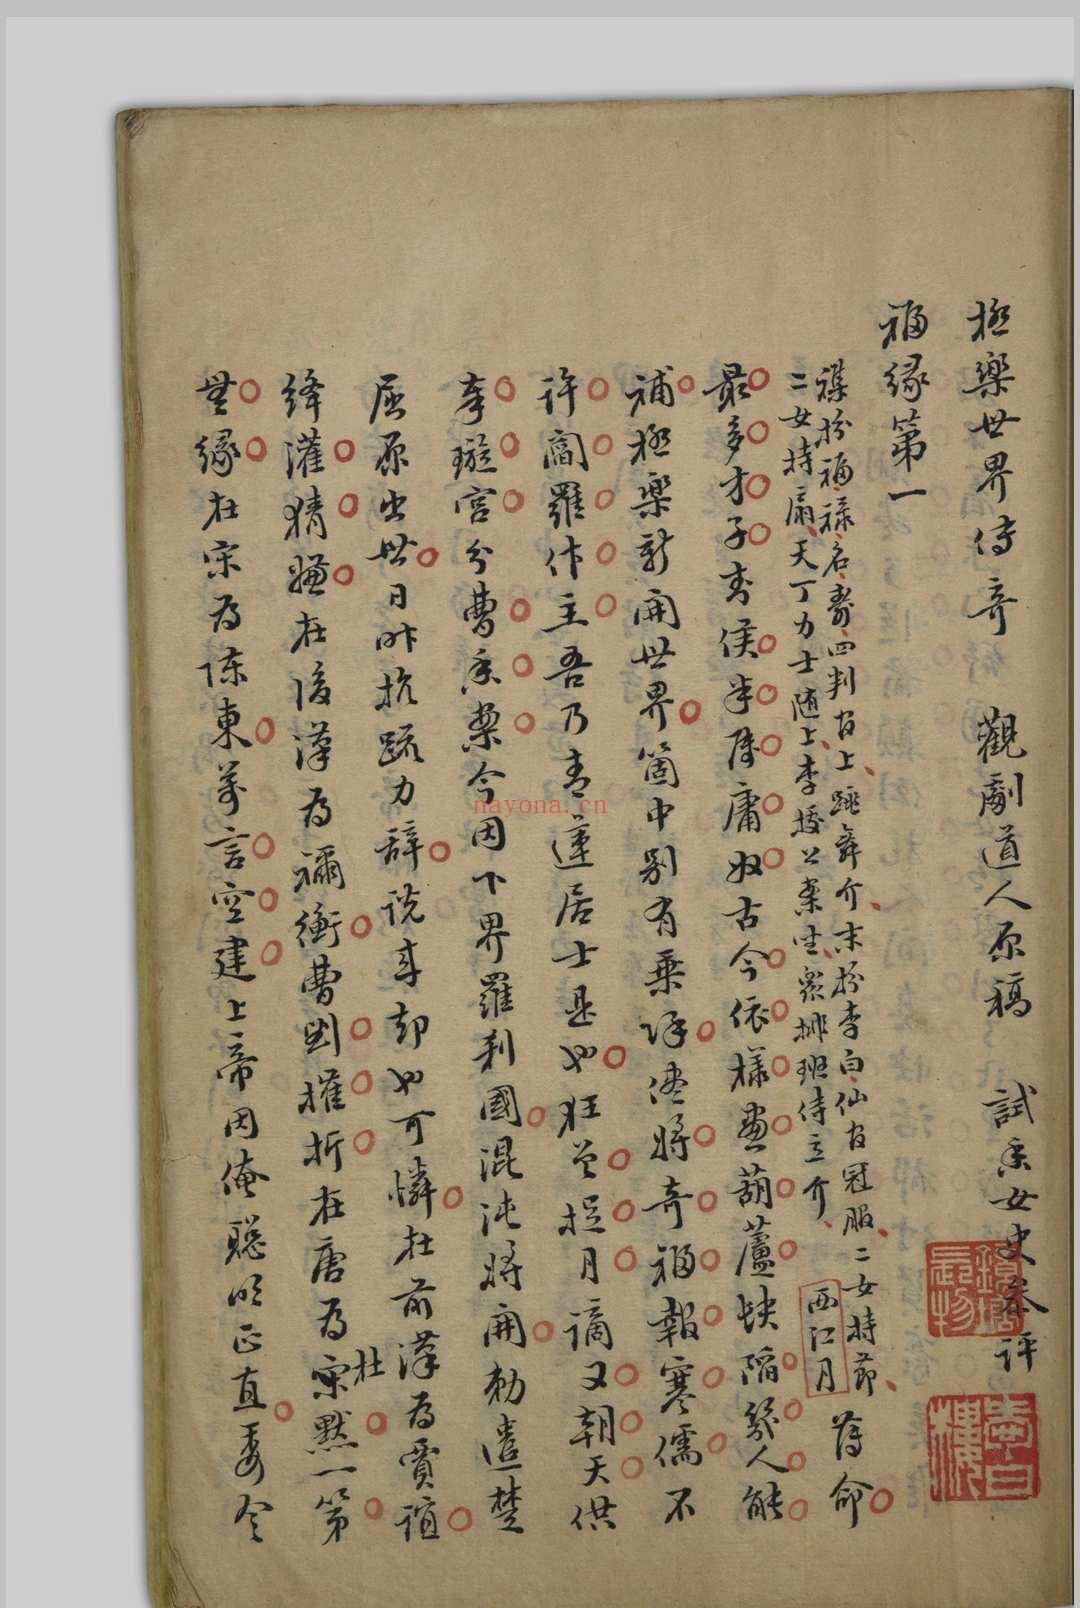 極樂世界傳奇 觀劇道人原稿 試香女史參評
福緣第一
雜扮福祿名壽四判官上跳舞介末扮李白仙官冠服二女持節
二女持扇天丁力士隨上李援公案坐衆排班侍立介
西江月
薄命
最多才子封侯半屬庸奴古今依樣畫葫蘆缺陷幾人能
補極樂新開世界箇中別有乘除儘將奇福報寒儒不
許閻羅作主吾乃青蓮居士是也狂曾捉月謫又朝天供
奉璇宮分曹香案今因下界羅刹國混沌將開勅遣楚
屈原出世日昨抗疏力辭說自却也可憐在前漢為賈誼
絳灌猜嫌在後漢為禰衡曹劉摧折在唐為宋杜默一第
無緣在宋為陳東萬言空建上帝因俺聰明正直委令
nayona.cn